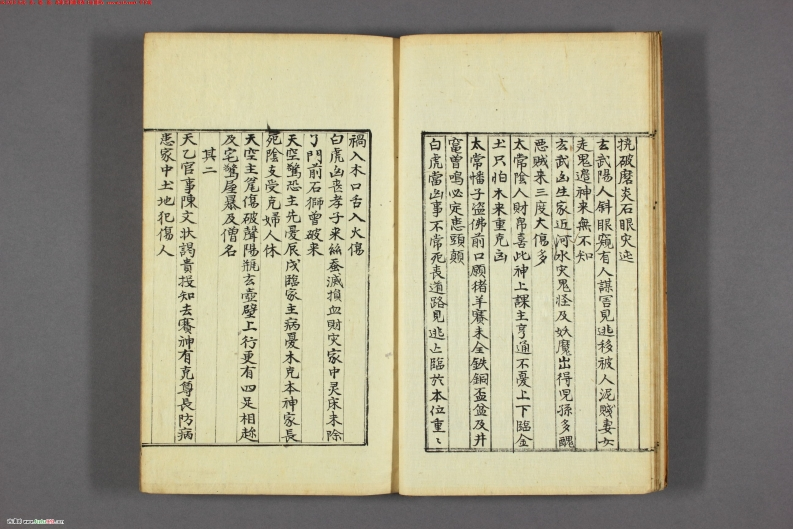 撓破磨炎石眼灾迍
玄武陽人斜眼窺有人謀害見逃移被人泥賤妻女
走鬼遶神来無不知
玄武凶生家近河水灾鬼怪及妖魔出得児孫多醜
惡賊来三度大傷多
太常陰人財帛喜此神上課主亨通不憂上下臨金
土只怕木来重克凶
太常幡子盗佛前口願猪羊賽未全鉄銅盃盆及井
竈曽鳴必定患頭顛
白虎當凶事不常死喪道路見逃亡臨於本位重〻
禍入木口舌入火傷
白虎凶喪孝子来絲蚕滅損血財灾家中灵床未除
了門前石獅曽破来
天空驚恐主先憂辰戌臨家主病憂木克本神家長
死陰支受克婦人休
天空主尾傷破聲陽瓶玄壺壁上行更有四足相趂
及宅驚屋暴及僧名
其二
天乙官事陳文状謁貴投知去賽神有克尊長防病
患家中土地犯傷人